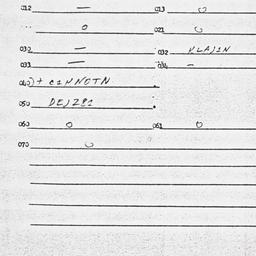 012 — 013 0
0 021 0
030 — 032 HLAJ1N
033 — 034 —
040 ) + C1HNOTN
050 DEJZ81
060 0 061 0
070 0